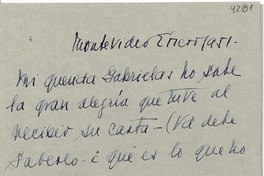 4281
Montevideo Enero 1951.
Mi querida Gabriela: no sabe
la gran alegría que tuve al
recibir su carta – (Vd debe
saberlo – ¿ qué es lo que no